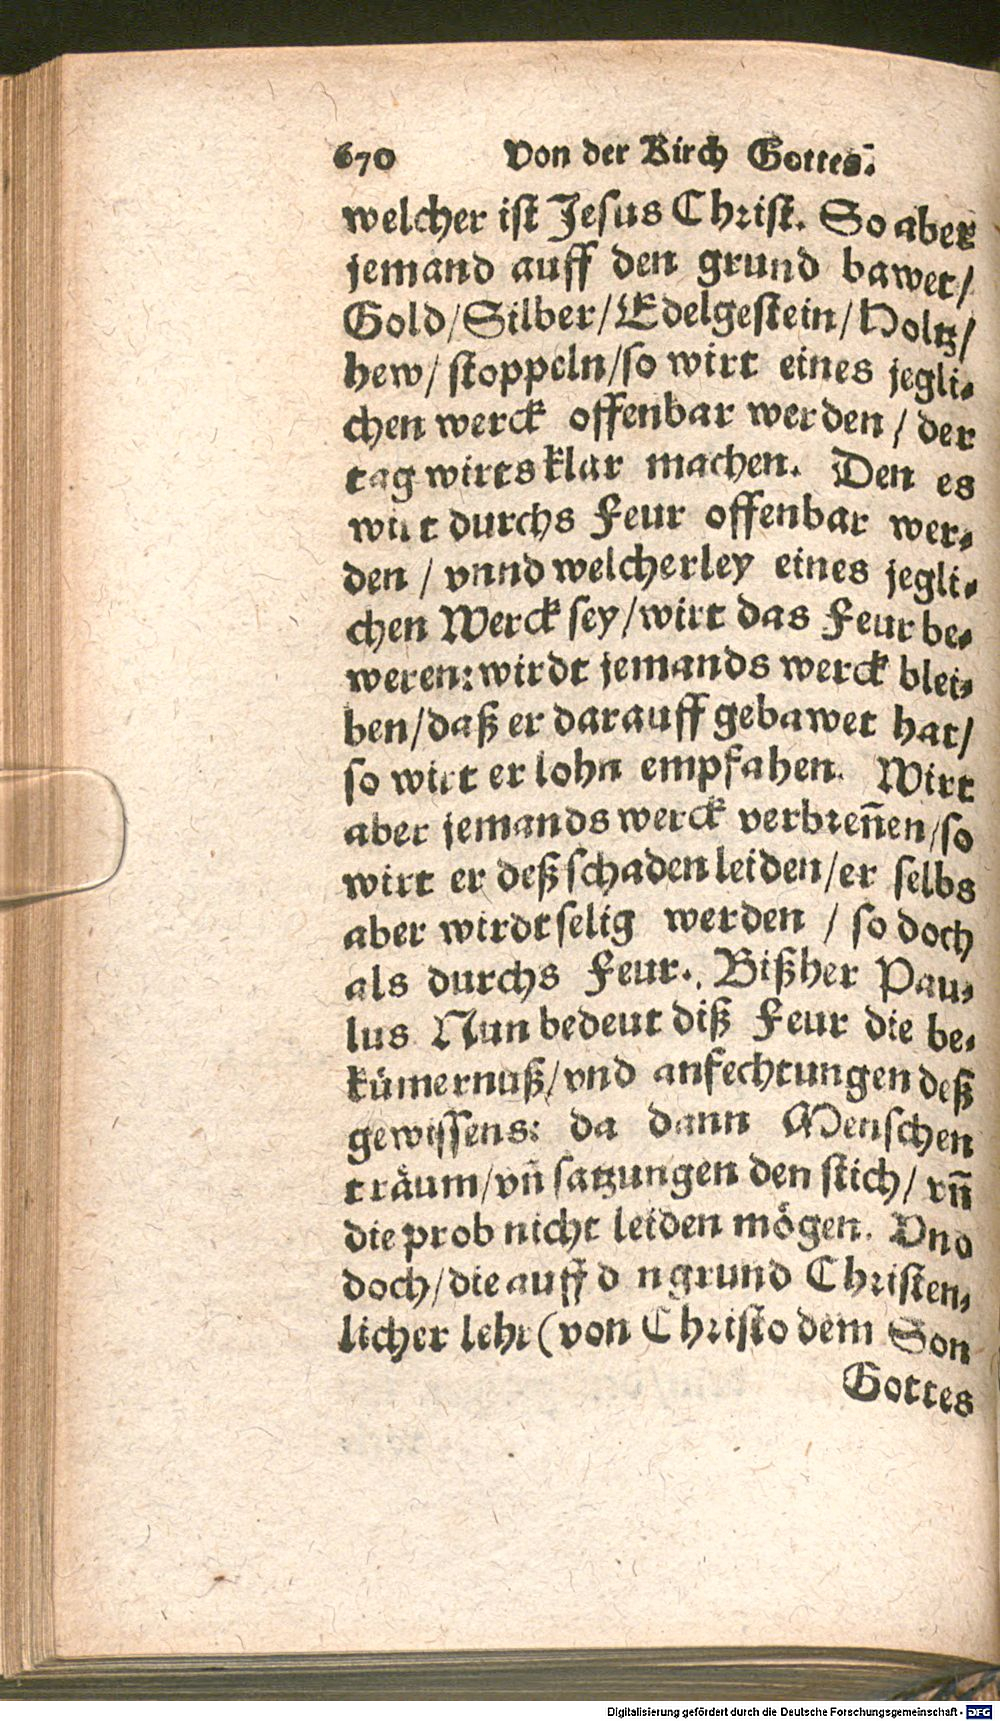 670 Von der Kirch Gottes.
welcher ist Jesus Christ. So aber
jemand auff den grund bawet/
Gold/Silber/Edelgestein/Holtz/
hew/stoppeln/so wirt eines jegli-
chen werck offenbar werden/der
tag wirts klar machen. Den es
wirt durchs Feur offenbar wer-
den/vnnd welcherley eines jegli-
chen Werck sey/wirt das Feur be-
weren: wirdt jemands werck blei-
ben/daß er darauff gebawet hat/
so wirt er lohn empfahen. Wirt
aber jemands werck verbreñen/so
wirt er deß schaden leiden/er selbs
aber wirdt selig werden/so doch
als durchs Feur. Bißher Pau-
lus Nun bedeut diß Feur die be-
kümernuß/vnd anfechtungen deß
gewissens: da dann Menschen
träum/vñ satzungen den stich/vñ
die prob nicht leiden mögen. Vnd
doch/die auff d n grund Christen-
licher lehr (von Christo dem Son
Gottes
Digitalisierung gefördert durch die Deutsche Forschungsgemeinschaft - DFG